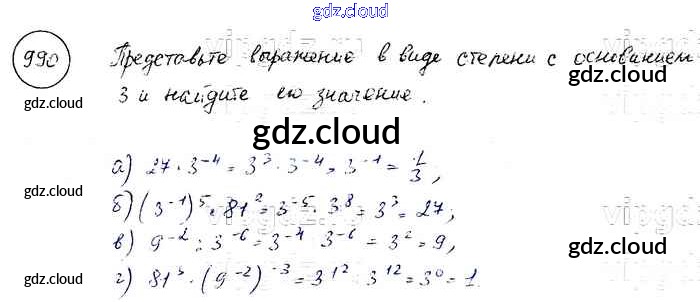 gdz.cloud
990 Представьте выражение в виде степени с основанием
gdz.cloud
3 и найдите его значение.
gdz.cloud
gdz.cloud
gdz.cloud
а) 27 · 3⁻⁴ = 3³ · 3⁻⁴ = 3⁻¹ = 1/3;
б) (3⁻¹)⁵ · 81² = 3⁻⁵ · 3⁸ = 3³ = 27;
в) 9⁻² : 3⁻⁶ = 3⁻⁴ 3⁻⁶ = 3² = 9,
gdz.cloud
gdz.cloud
г) 81³ · (9⁻²)⁻³ = 3¹² 3¹² = 3⁰ = 1.
gdz.cloud
gdz.cloud